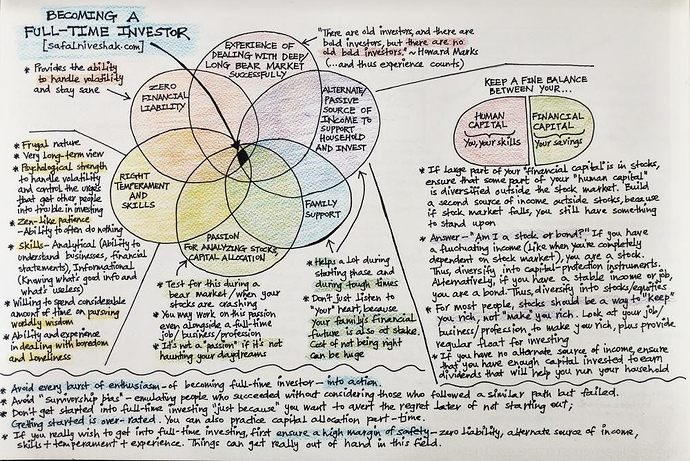 BECOMING A
FULL-TIME INVESTOR
[safalniveshak.com]
"There are old investors, and there are
bold investors, but there are no
old bold investors." ~ Howard Marks
(...and thus experience counts)
EXPERIENCE OF
DEALING WITH DEEP/
LONG BEAR MARKET
SUCCESSFULLY
* Provides the ability
to handle volatility
and stay sane
ZERO
FINANCIAL
LIABILITY
ALTERNATE/
PASSIVE
SOURCE OF
INCOME TO
SUPPORT
HOUSEHOLD
AND INVEST
RIGHT
TEMPERAMENT
AND
SKILLS
FAMILY
SUPPORT
PASSION
FOR ANALYZING STOCKS,
CAPITAL ALLOCATION
* Frugal nature
* Very long-term view
* Psychological strength
to handle volatility
and control the urges
that get other people
into trouble in investing
* Zen-like patience
-Ability to often do nothing
* Skills - Analytical (Ability to
understand businesses, financial
statements), Informational
(Knowing what's good info and
what's useless)
* Willing to spend considerable
amount of time on pursuing
worldly wisdom
* Ability and experience
in dealing with boredom
and loneliness
* Test for this during a
bear market, when your
stocks are crashing
* You may work on this passion
even alongside a full-time
job/business/profession
* It's not a "passion" if it's not
haunting your daydreams
* Helps a lot during
starting phase and
during tough times
* Don't just listen to
"your" heart, because
your family's financial
future is also at stake.
Cost of not being right
can be huge
KEEP A FINE BALANCE
BETWEEN YOUR...
HUMAN
CAPITAL
You, your skills
FINANCIAL
CAPITAL
Your savings
* If large part of your "financial capital" is in stocks,
ensure that some part of your "human capital"
is diversified outside the stock market. Build
a second source of income outside stocks, because
if stock market falls, you still have something
to stand upon
* Answer - "Am I a stock or bond?" If you have
a fluctuating income (like when you're completely
dependent on stock market), you are a stock.
Thus, diversify into capital-protection instruments.
Alternatively, if you have a stable income or job,
you are a bond. Thus, diversify into stocks/equities
* For most people, stocks should be a way to "keep"
you rich, not "make" you rich. Look at your job/
business/profession, to make you rich, plus provide
regular float for investing
* If you have no alternate source of income, ensure
that you have enough capital invested to earn
dividends that will help you run your household
* Avoid every burst of enthusiasm - of becoming full-time investor - into action.
* Avoid "Survivorship bias" - emulating people who succeeded without considering those who followed a similar path but failed.
* Don't get started into full-time investing "just because" you want to avert the regret later of not starting out;
Getting started is over-rated. You can also practice capital allocation part-time.
* If you really wish to get into full-time investing, first ensure a high margin of safety - zero liability, alternate source of income,
skills + temperament + experience. Things can get really out of hand in this field.